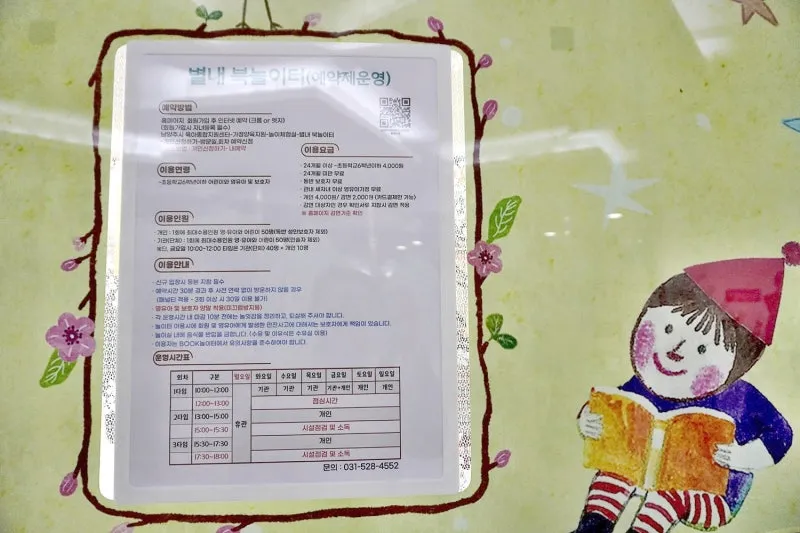 별내 북놀이터(예약제운영)
예약방법
홈페이지 회원가입 후 인터넷 예약 (크롬 or 엣지)
(회원가입시 자녀등록 필수)
남양주시 육아종합지원센터-가정양육지원-놀이체험실-별내 북놀이터
개인신청하기-내예약
이용요금
· 24개월 이상 ~초등학교6학년이하 4,000원
· 24개월 미만 무료
· 동반 보호자 무료
· 관내 세자녀 이상 영유아가정 무료
· 개인 4,000원 / 감면 2,000원 (카드결제만 가능)
· 감면 대상자인 경우 확인서류 지참시 감면 적용
※ 홈페이지 감면기준 확인
이용연령
~초등학교6학년이하 어린이와 영유아 및 보호자
이용인원
· 개인 : 1회에 최대수용인원 영·유아와 어린이 50명(동반 성인보호자 제외)
· 기관(단체) : 1회에 최대수용인원 영·유아와 어린이 50명(인솔자 제외)
· 목단, 금요일 10:00~12:00 타임은 기관(단체) 40명 + 개인 10명
이용안내
· 신규 입장시 등본 지참 필수
· 예약시간 30분 경과 후 사전 연락 없이 방문하지 않을 경우
(패널티 적용 - 3회 이상 시 30일 이용 불가)
· 영유아 및 보호자 양말 착용(미끄럼방지용)
· 각 운영시간 내 마감 10분 전에는 놀잇감을 정리하고, 퇴실해 주셔야 합니다.
· 놀이터 이용시에 회원 및 영유아에게 발생한 안전사고에 대해서는 보호자에게 책임이 있습니다.
· 놀이실 내에 음식물 반입을 금합니다. (수유 및 이유식은 수유실 이용)
· 이용자는 BOOK놀이터에서 유의사항을 준수하여야 합니다.
운영시간표
회차 구분 월요일 화요일 수요일 목요일 금요일 토요일 일요일
1타임 10:00~12:00 휴관 기관 기관 기관 기관+개인 개인 개인
12:00~13:00 점심시간
2타임 13:00~15:00 개인
15:00~15:30 시설점검 및 소독
3타임 15:30~17:30 개인
17:30~18:00 시설점검 및 소독
문의 : 031-528-4552